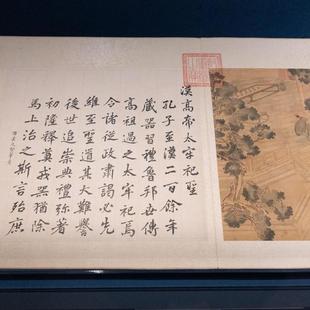 漢高帝太牢祀聖
孔子至漢二百餘年
藏器習禮魯邦世傳
高祖過之太牢祀焉
合諸從政肅謁必先
維至聖道其大難譽
後世追崇典禮弥著
初隆釋奠我器猶除
馬上治之斯言殆庶